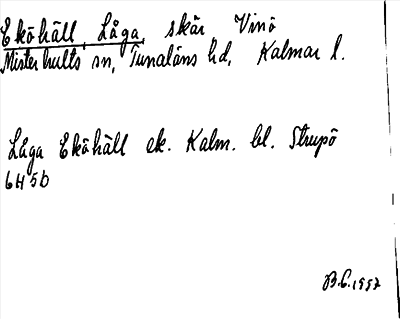 Eköhäll, Låga, skär Vinö
Misterhults sn, Tunaläns hd, Kalmar l.
Låga Eköhäll ek. Kalm. bl. Strupö
6H5b
B.E. 1957